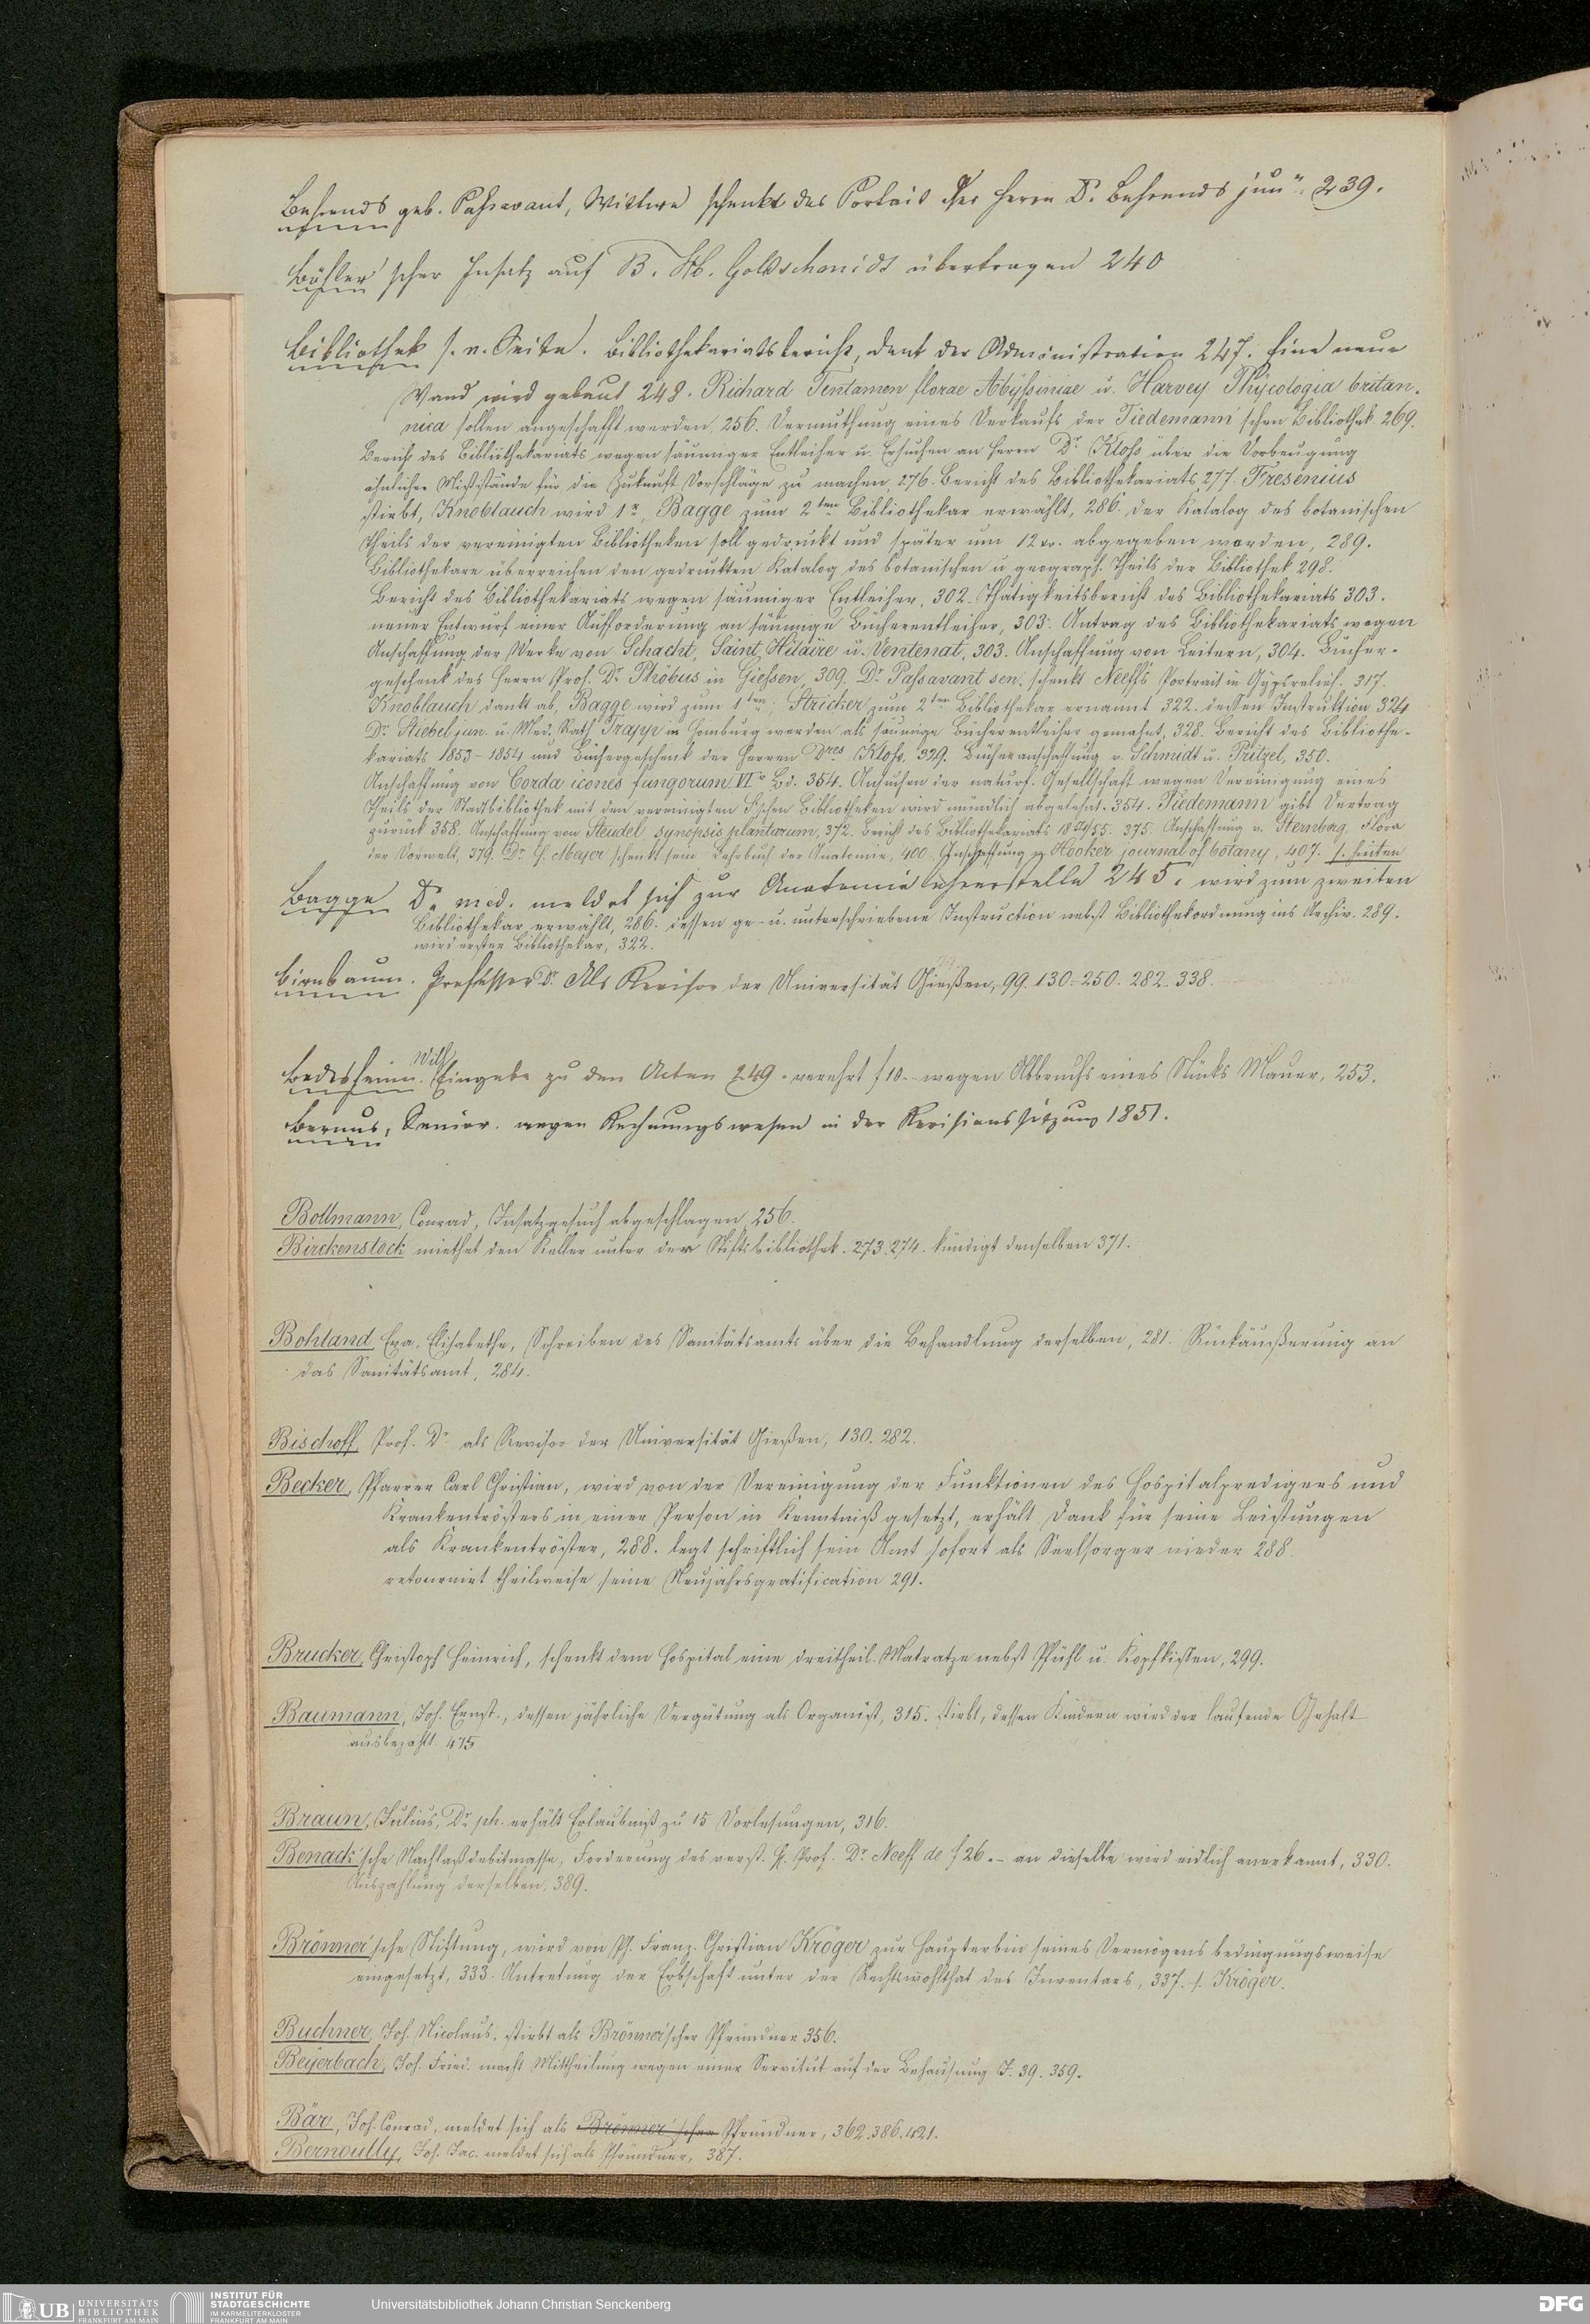 Behrends geb. Passavant, Wittwe schenkt das Portait des Herrn Dr. Behrends jun. 239.
'scher Insatz auf B. H. Goldschmidt übertragen 240
Bibliothek s. v. Seite. Bibliothekariatsbericht, dankt der Administration 247. Eine neue
Wand wird gebaut 248. Richard Tentamen florae Abyssiniae u. Harvey Phycologia britan-
nica sollen angeschafft werden, 256. Vermuthung eines Verkaufs der Tiedemann'schen Bibliothek 269.
Bericht des Bibliothekariats wegen säumiger Entleiher u. Ersuchen an Herrn Dr. Kloss über die Vorbeugung
ähnlicher Mißstände für die Zukunft Vorschläge zu machen, 276. Bericht des Bibliothekariats 277. Fresenius
stirbt, Knoblauch wird 1r, Bagge zum 2ten Bibliothekar erwählt, 286. Der Katalog des botanischen
Theils der vereinigten Bibliotheken soll gedruckt und später um 12 xr. abgegeben werden, 289.
Bibliothekare überreichen den gedruckten Katalog des botanischen u geograph. Theils der Bibliothek 298.
Bericht des Bibliothekariats wegen säumiger Entleiher, 302. Thätigkeitsbericht des Bibliothekariats 303.
neuer Entwurf einer Aufforderung an säumige Bücherentleiher, 303. Antrag des Bibliothekariats wegen
Anschaffung der Werke von Schacht, Saint Hilaire u. Ventenat, 303. Anschaffung von Leitern, 304. Bücher-
geschenk des Herrn Prof. Dr. Phöbus in Giessen, 309. Dr. Passavant sen. schenkt Neeff's Portrait in Gypsrelief. 317.
Knoblauch dankt ab, Bagge wird zum 1ten, Stricker zum 2ten Bibliothekar ernannt 322. dessen Instruktion 324
Dr. Stiebel jun. u. Med. Rath Trapp in Homburg werden als säumige Bücherentleiher gemahnt, 328. Bericht des Bibliothe-
kariats 1853-1854 und Büchergeschenk der Herren Dres Kloss, 329. Bücheranschaffung v. Schmidt u. Pritzel, 350.
Anschaffung von Corda icones fungorum VIr Bd. 354. Ansuchen der naturf. Gesellschaft wegen Vereinigung eines
Theils der Stadtbibliothek mit den vereinigten S'schen Bibliotheken wird mündlich abgelehnt. 354. Tiedemann gibt Vertrag
zurück 358. Anschaffung von Steudel, synopsis plantarum, 372. Bericht des Bibliothekariats 1854/55. 375. Anschaffung v. Sternberg, Flora
der Vorwelt, 379. Dr. H. Meyer schenkt sein Lehrbuch der Anatomie, 400. Anschaffung v. Hooker journal of botany, 407. s. hinten
Bagge Dr. med. meldet sich zur Anatomielehrerstelle 245. wird zum zweiten
Bibliothekar erwählt, 286. dessen ge- u. unterschriebene Instruction nebst Bibliothekordnung ins Archiv. 289.
wird erster Bibliothekar, 322.
Birnbaum. Professor Dr. Als Revisor der Universität Gießen, 99. 130. 250. 282. 338.
Wilh.
Eingabe zu den Acten 249. verehrt f 10.- wegen Abbruchs eines Stücks Mauer, 253.
Bernus, Senior. wegen Rechnungswesen in der Revisionssitzung 1851.
Bollmann, Conrad, Insatzgesuch abgeschlagen, 256.
Birckenstock miethet den Keller unter der Stiftsbibliothek. 273. 274. kündigt denselben 371.
Bohland, Eva, Elisabethe, Schreiben des Sanitätsamts über die Behandlung derselben, 281. Rückäußerung an
das Sanitätsamt, 284.
Bischoff, Prof. Dr. als Revisor der Universität Gießen, 130. 282.
Becker, Pfarrer Carl Christian, wird von der Vereinigung der Funktionen des Hospitalpredigers und
Krankentrösters in einer Person in Kenntniß gesetzt, erhält Dank für seine Leistungen
als Krankentröster, 288. legt schriftlich sein Amt sofort als Seelsorger nieder 288.
retournirt theilweise seine Neujahrsgratification 291.
Brucker, Christoph Heinrich, schenkt dem Hospital eine dreitheil. Matratze nebst Pfühl u. Kopfkissen, 299.
Baumann, Joh. Ernst., dessen jährliche Vergütung als Organist, 315. stirbt, dessen Kindern wird der laufende Gehalt
ausbezahlt. 475
Braun, Julius, Dr. ph. erhält Erlaubniß zu 15 Vorlesungen, 316.
Benack'sche Nachlaßdebitmasse, Forderung des verst. H. Prof. Dr. Neeff de f 26.- an dieselbe wird eidlich anerkannt, 330.
Auszahlung derselben, 389.
Brönner'sche Stiftung, wird von Ph. Franz. Christian Kröger zur Haupterbin seines Vermögens bedingungsweise
eingesetzt, 333. Antretung der Erbschaft unter der Rechtswohlthat des Inventars, 337. s. Kröger.
Buchner, Joh. Nicolaus, stirbt als Brönner'scher Pfründner 356.
Beyerbach, Joh. Fried. macht Mittheilung wegen einer Servitut auf der Behausung J. 39. 359.
Bär, Joh. Conrad, meldet sich als Brönner'scher Pfründner, 362. 386. 421.
Bernoully, Joh. Jac. meldet sich als Pfründner, 387.
UB UNIVERSITÄTS
BIBLIOTHEK
FRANKFURT AM MAIN
INSTITUT FÜR
STADTGESCHICHTE
IM KARMELITERKLOSTER
FRANKFURT AM MAIN
Universitätsbibliothek Johann Christian Senckenberg
DFG